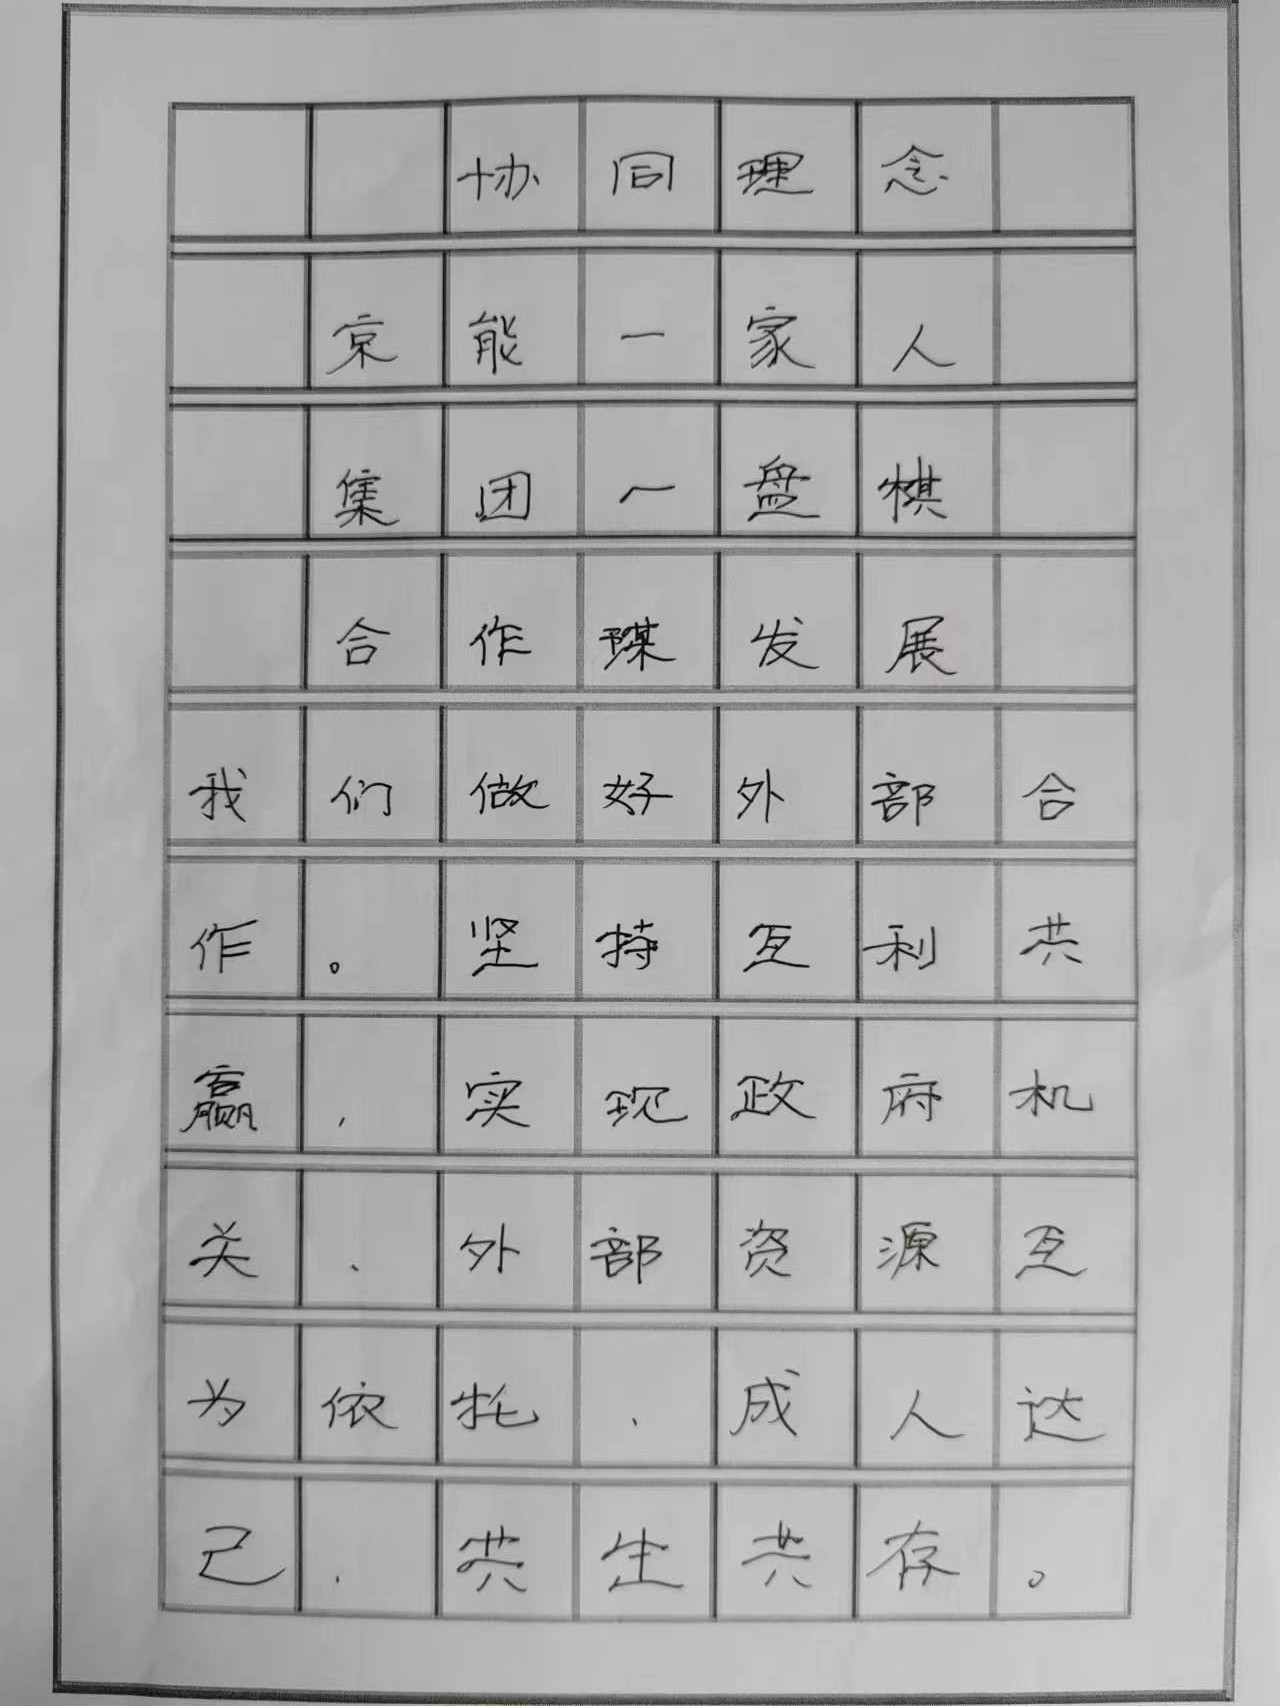 协同理念
京能一家人
集团一盘棋
合作谋发展
我们做好外部合
作。坚持互利共
赢，实现政府机
关、外部资源互
为依托，成人达
己，共生共存。